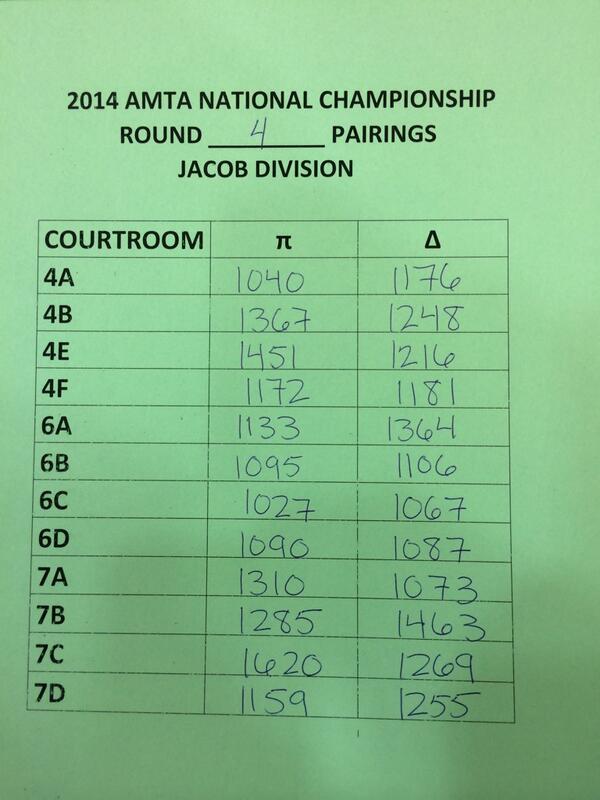 2014 AMTA NATIONAL CHAMPIONSHIP
ROUND 4 PAIRINGS
JACOB DIVISION
COURTROOM π Δ
4A 1040 1176
4B 1367 1248
4E 1451 1216
4F 1172 1181
6A 1133 1364
6B 1095 1106
6C 1027 1067
6D 1090 1087
7A 1310 1073
7B 1285 1463
7C 1620 1269
7D 1159 1255